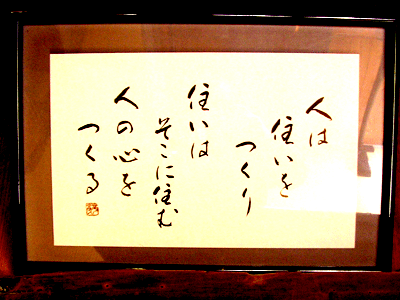 人は
住いを
つくり
住いは
そこに住む
人の心を
つくる